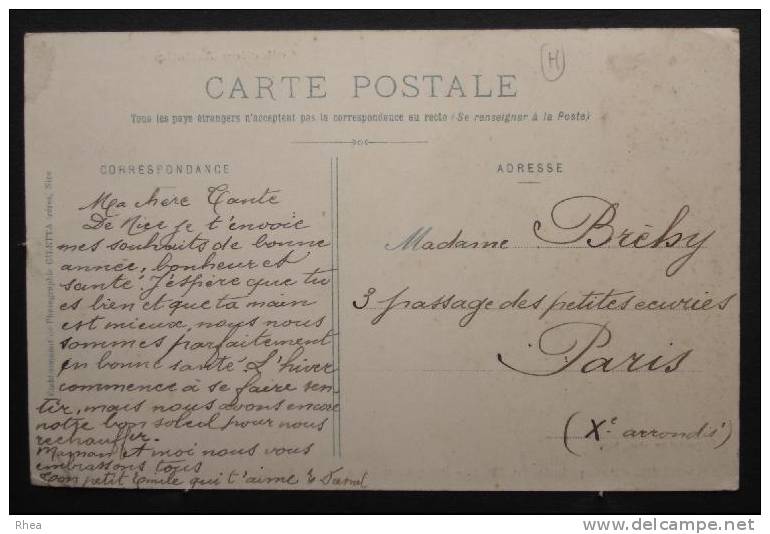 H
CARTE POSTALE
Tous les pays étrangers n'acceptent pas la correspondance au recto (Se renseigner à la Poste)
CORRESPONDANCE
Ma chère Tante
De Nice je t'envoie
mes souhaits de bonne
année, bonheur et
santé. J'éspère que tu
es bien et que ta main
est mieux, nous nous
sommes parfaitement
en bonne santé. L'hiver
commence à se faire sen
tir, mais nous avons encore
notre bon soleil pour nous
rechauffer.
Maman et moi nous vous
embrassons tous
Ton petit Emile qui t'aime
ADRESSE
Madame Bréhy
3 passage des petites ecuries
Paris
(Xe arrondis')
Etablissement de Photographie GILETTA frères, Nice
Rhea
www.delcampe.net